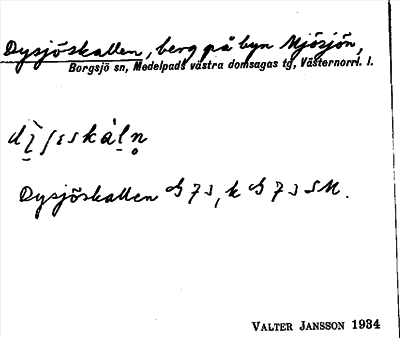 Dysjöskallen, berg på byn Mjösjön,
Borgsjö sn, Medelpads västra domsagas tg, Västernorrl. l.
Dysjöskallen
VALTER JANSSON 1934